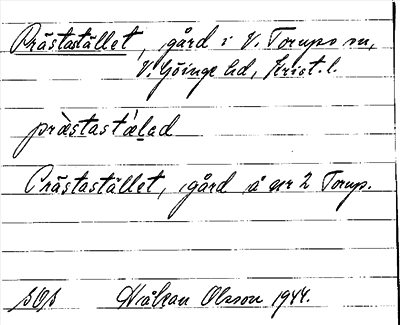 Prästastället, gård i V. Torups sn,
V. Göinge hd, Krist. l.
præ̀stastǽlad
Prästastället, gård å nr 2 Torup.
Håkan Olsson 1944.